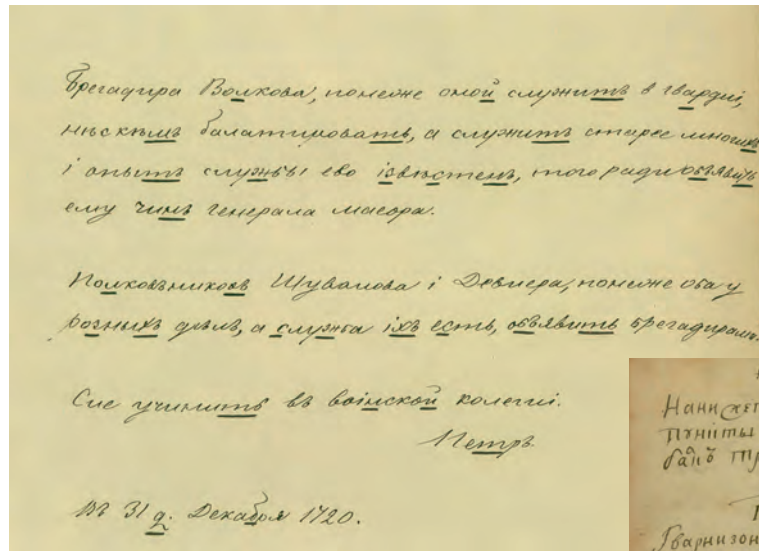 Брегадира Волкова, понеже оной служитъ в гвардиі,
нѣскѣмъ балатироватъ, а служитъ старее многихъ
і опытъ службы ево ізвѣстенъ, того ради объявить
ему чинъ генерала маеора.
Полковъниковъ Шувалова і Девиера, понеже оба у
розныхъ дѣлъ, а служба іхъ есть, объявить брегадирами.
Сие учинить въ воінской колегиі.
Петръ.
Въ 31 д. Декабря 1720.
Пункты
Гварнизон